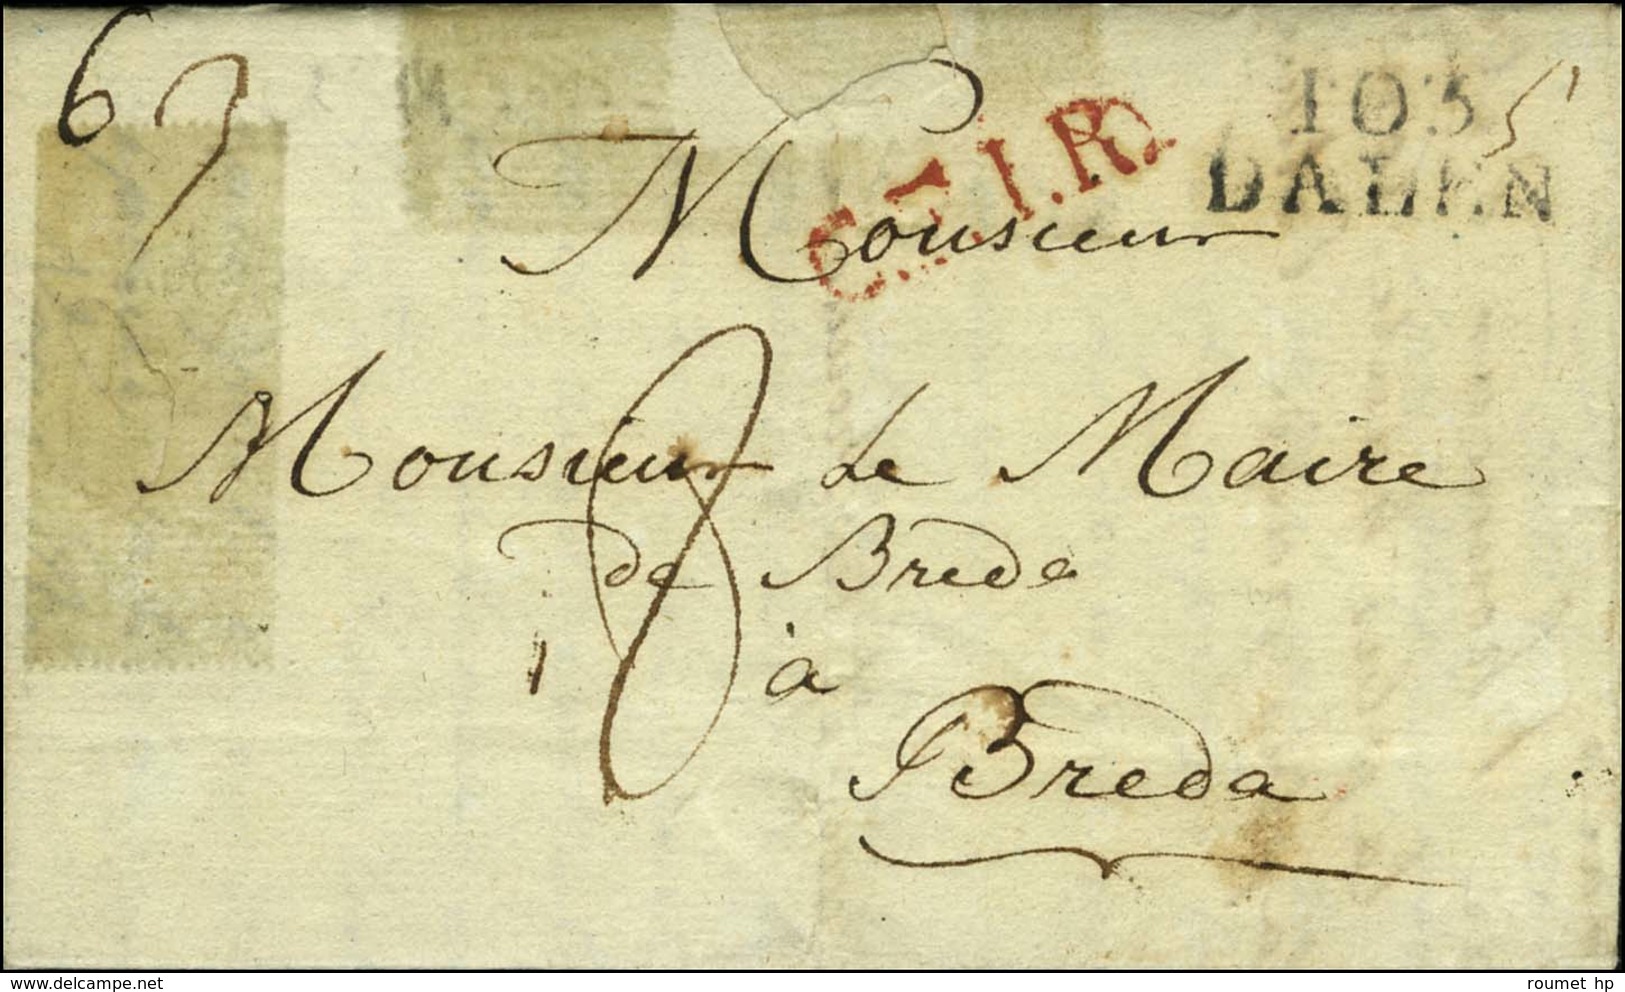 6
103
DALEN
C.T.I.R.
Monsieur
Monsieur Le Maire
de Breda
à
Breda
delcampe.net
roumet hp